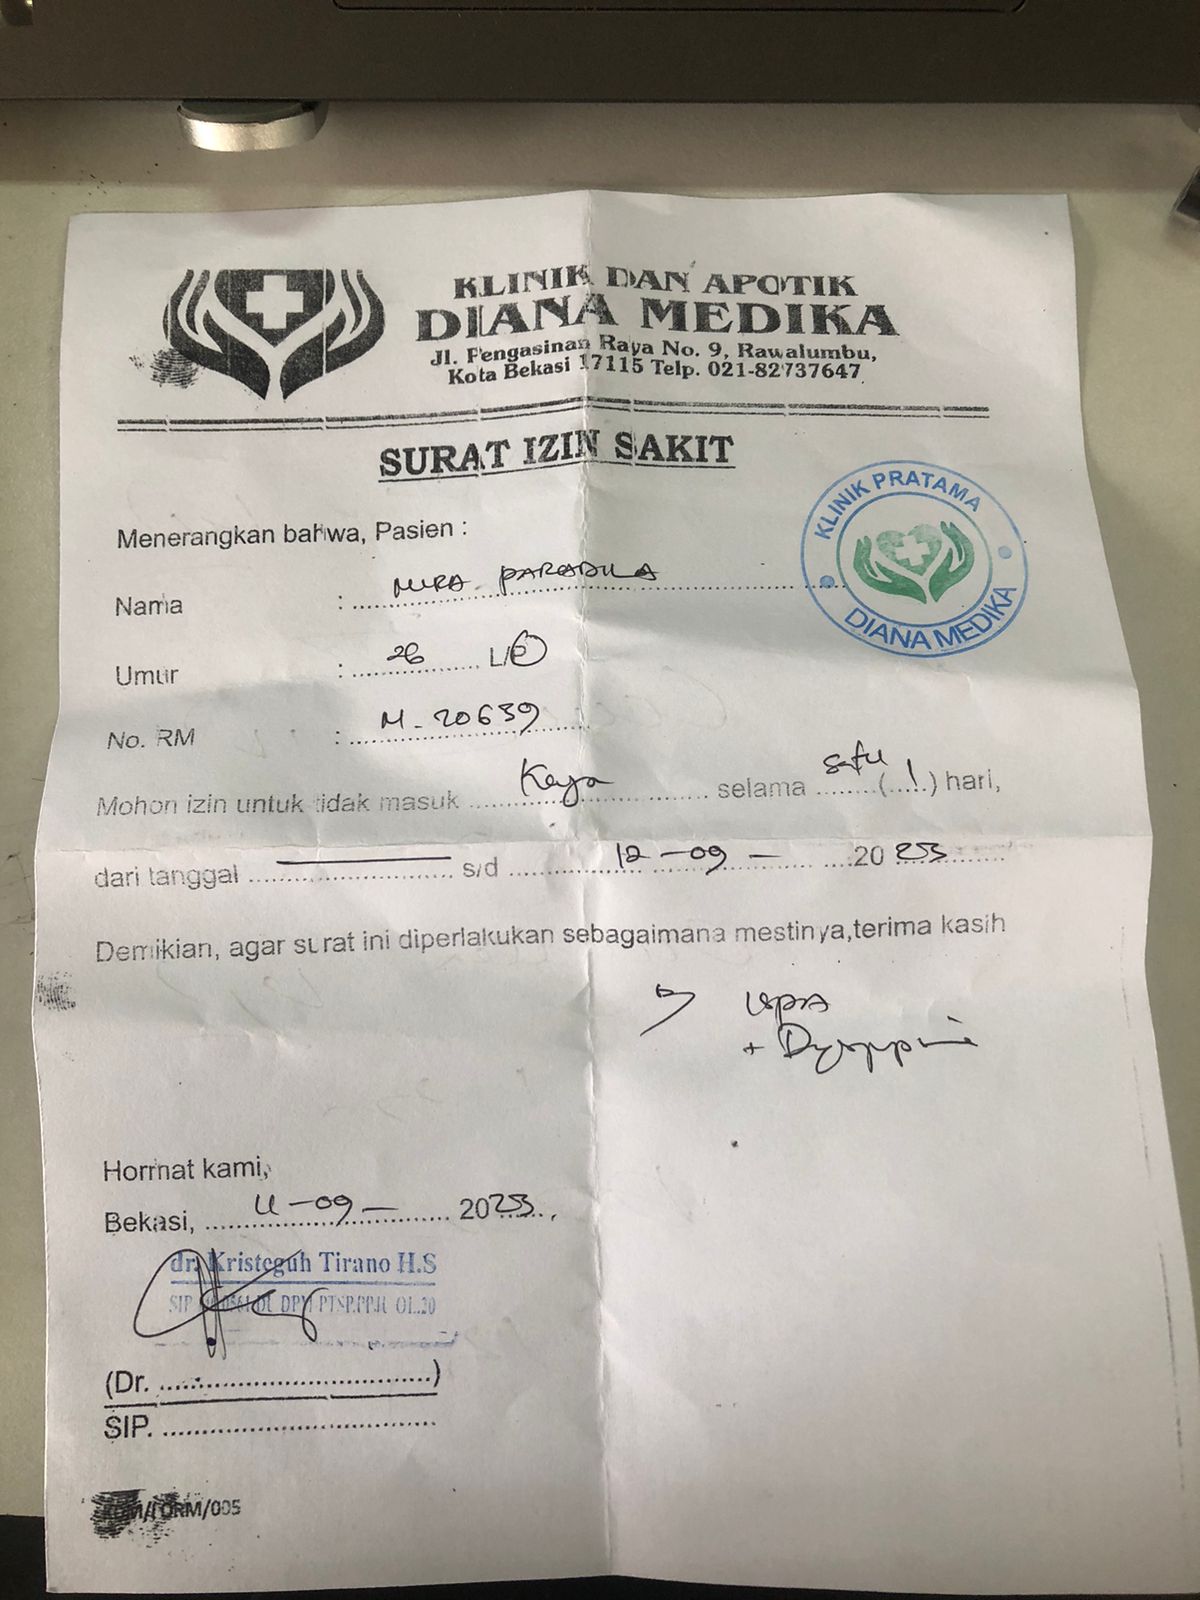 KLINIK DAN APOTIK
DIANA MEDIKA
Jl. Pengasinan Raya No. 9, Rawalumbu,
Kota Bekasi 17115 Telp. 021-82737647
SURAT IZIN SAKIT
KLINIK PRATAMA
DIANA MEDIKA
Menerangkan bahwa, Pasien :
Nama : PARADILA
Umur : 26 L/P
No. RM : M-20639
Mohon izin untuk tidak masuk Kerja selama satu (1) hari,
dari tanggal s/d 12-09- 20
Demikian, agar surat ini diperlakukan sebagaimana mestinya,terima kasih
+ Dyspepsia
Hormat kami,
Bekasi, 11-09- 20
dr. Kristeguh Tirano H.S
(Dr. )
SIP.
/FORM/005